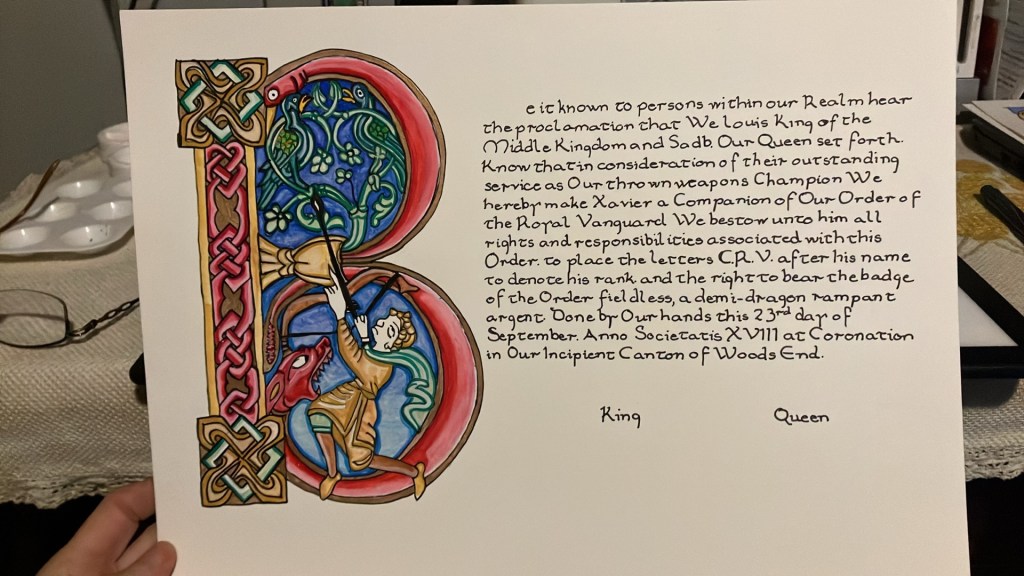 B
e it known to persons within our Realm hear
the proclamation that We Louis King of the
Middle Kingdom and Sadb, Our Queen set forth.
Know that in consideration of their outstanding
service as Our thrown weapons Champion We
hereby make Xavier a Companion of Our Order of
the Royal Vanguard. We bestow unto him all
rights and responsibilities associated with this
Order, to place the letters C.R.V. after his name
to denote his rank and the right to bear the badge
of the Order fieldless, a demi-dragon rampant
argent Done by Our hands this 23rd day of
September. Anno Societatis XVIII at Coronation
in Our Incipient Canton of Woods End.
King Queen